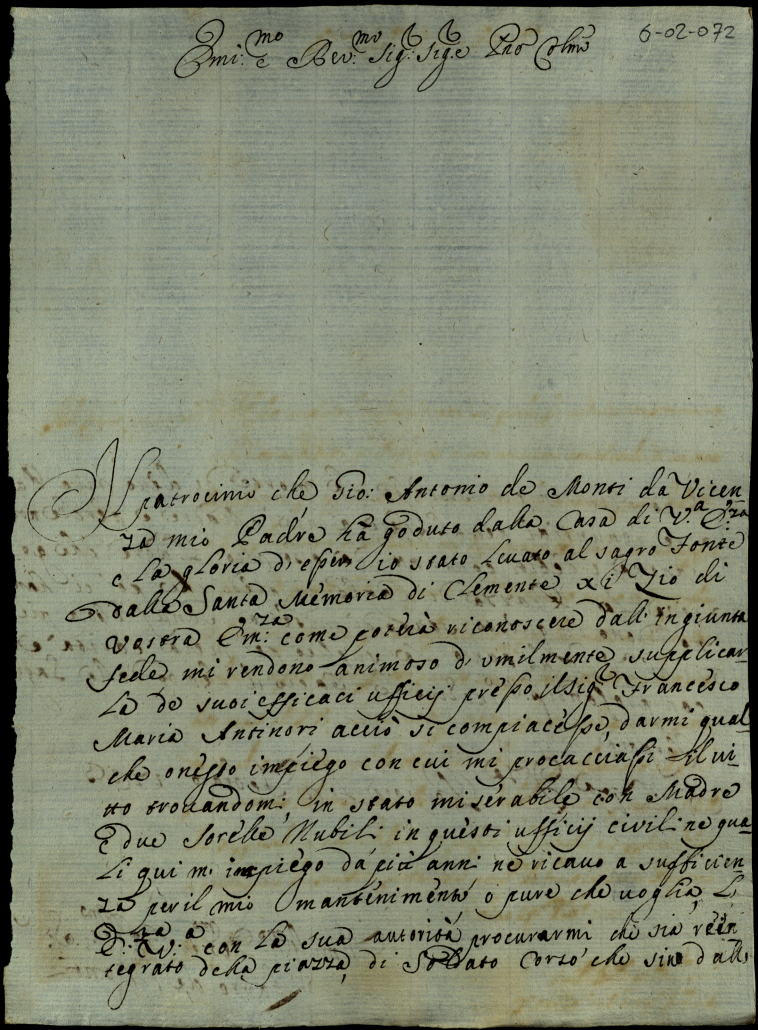 6-02-072
Emi:mo e Rev:mo Sig:r Sig:r e Pro͞n Colmo
Il patrocinio che Gio: Antonio de Monti da Vicen
za mio Padre ha goduto dalla Casa di V:a E:za
e la gloria d'esser io stato levato al sagro Fonte
dalla Santa Memoria di Clemente XI Zio di
Vostra Em:za come poterà riconoscere dall'ingiunta
fede mi rendono animoso d'umilmente supplicar
La de suoi efficaci ufficij presso il Sig:r Francesco
Maria Antinori acciò si compiacesse, darmi qual
che onesto impiego con cui mi procacciassi il vi-
tto trovandomi in stato miserabile con Madre
e due Sorelle Nubili in questi ufficij civili ne qua-
li qui m'impiego da più anni ne ricavo a sufficien
za per il mio mantenimento o pure che voglia L'
E:za V:a con la sua autorità procurarmi che sia rein
tegrato della piazza, di Soldato Corso che sin dall'